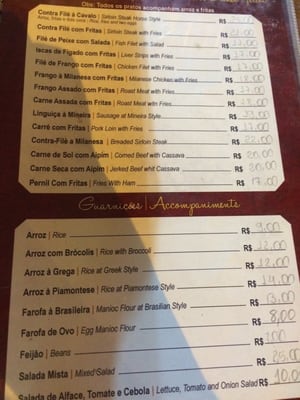 Obs: Todos os pratos acompanham arroz e fritas
Contra Filé à Cavalo | Sirloin Steak Horse Style R$
Contra Filé com Fritas | Sirloin Steak with Fries R$
Filé de Peixe com Salada | Fish Filet with Salad R$
Iscas de Fígado com Fritas | Liver Strips with Fries R$
Filé de Frango com Fritas | Chicken Filet with Fries R$ 17,00
Frango à Milanesa com Fritas | Milanese Chicken with Fries R$ 18,00
Frango Assado com Fritas | Roast Meat with Fries R$ 17,00
Carne Assada com Fritas | Roast Meat with Fries R$ 18,00
Linguiça à Mineira | Sausage at Mineira Style R$
Carré com Fritas | Pork Loin with Fries R$ 17,00
Contra-Filé a Milanesa | Breaded Sirloin Steak R$ 22,00
Carne de Sol com Aipim | Corned Beef with Cassava R$ 20,00
Carne Seca com Aipim | Jerked Beef whit Cassava R$ 20,00
Pernil Com Fritas | Fries With Ham R$ 17,00
Guarnições | Accompaniments
Arroz | Rice R$ 9,00
Arroz com Brócolis | Rice with Broccoli R$ 12,00
Arroz à Grega | Rice at Greek Style R$ 12,00
Arroz à Piamontese | Rice at Piamontese Style R$ 14,00
Farofa à Brasileira | Manioc Flour at Brasilian Style R$ 13,00
Farofa de Ovo | Egg Manioc Flour R$ 8,00
Feijão | Beans R$
Salada Mista | Mixed Salad R$
Salada de Alface, Tomate e Cebola | Lettuce, Tomato and Onion Salad R$ 10,0